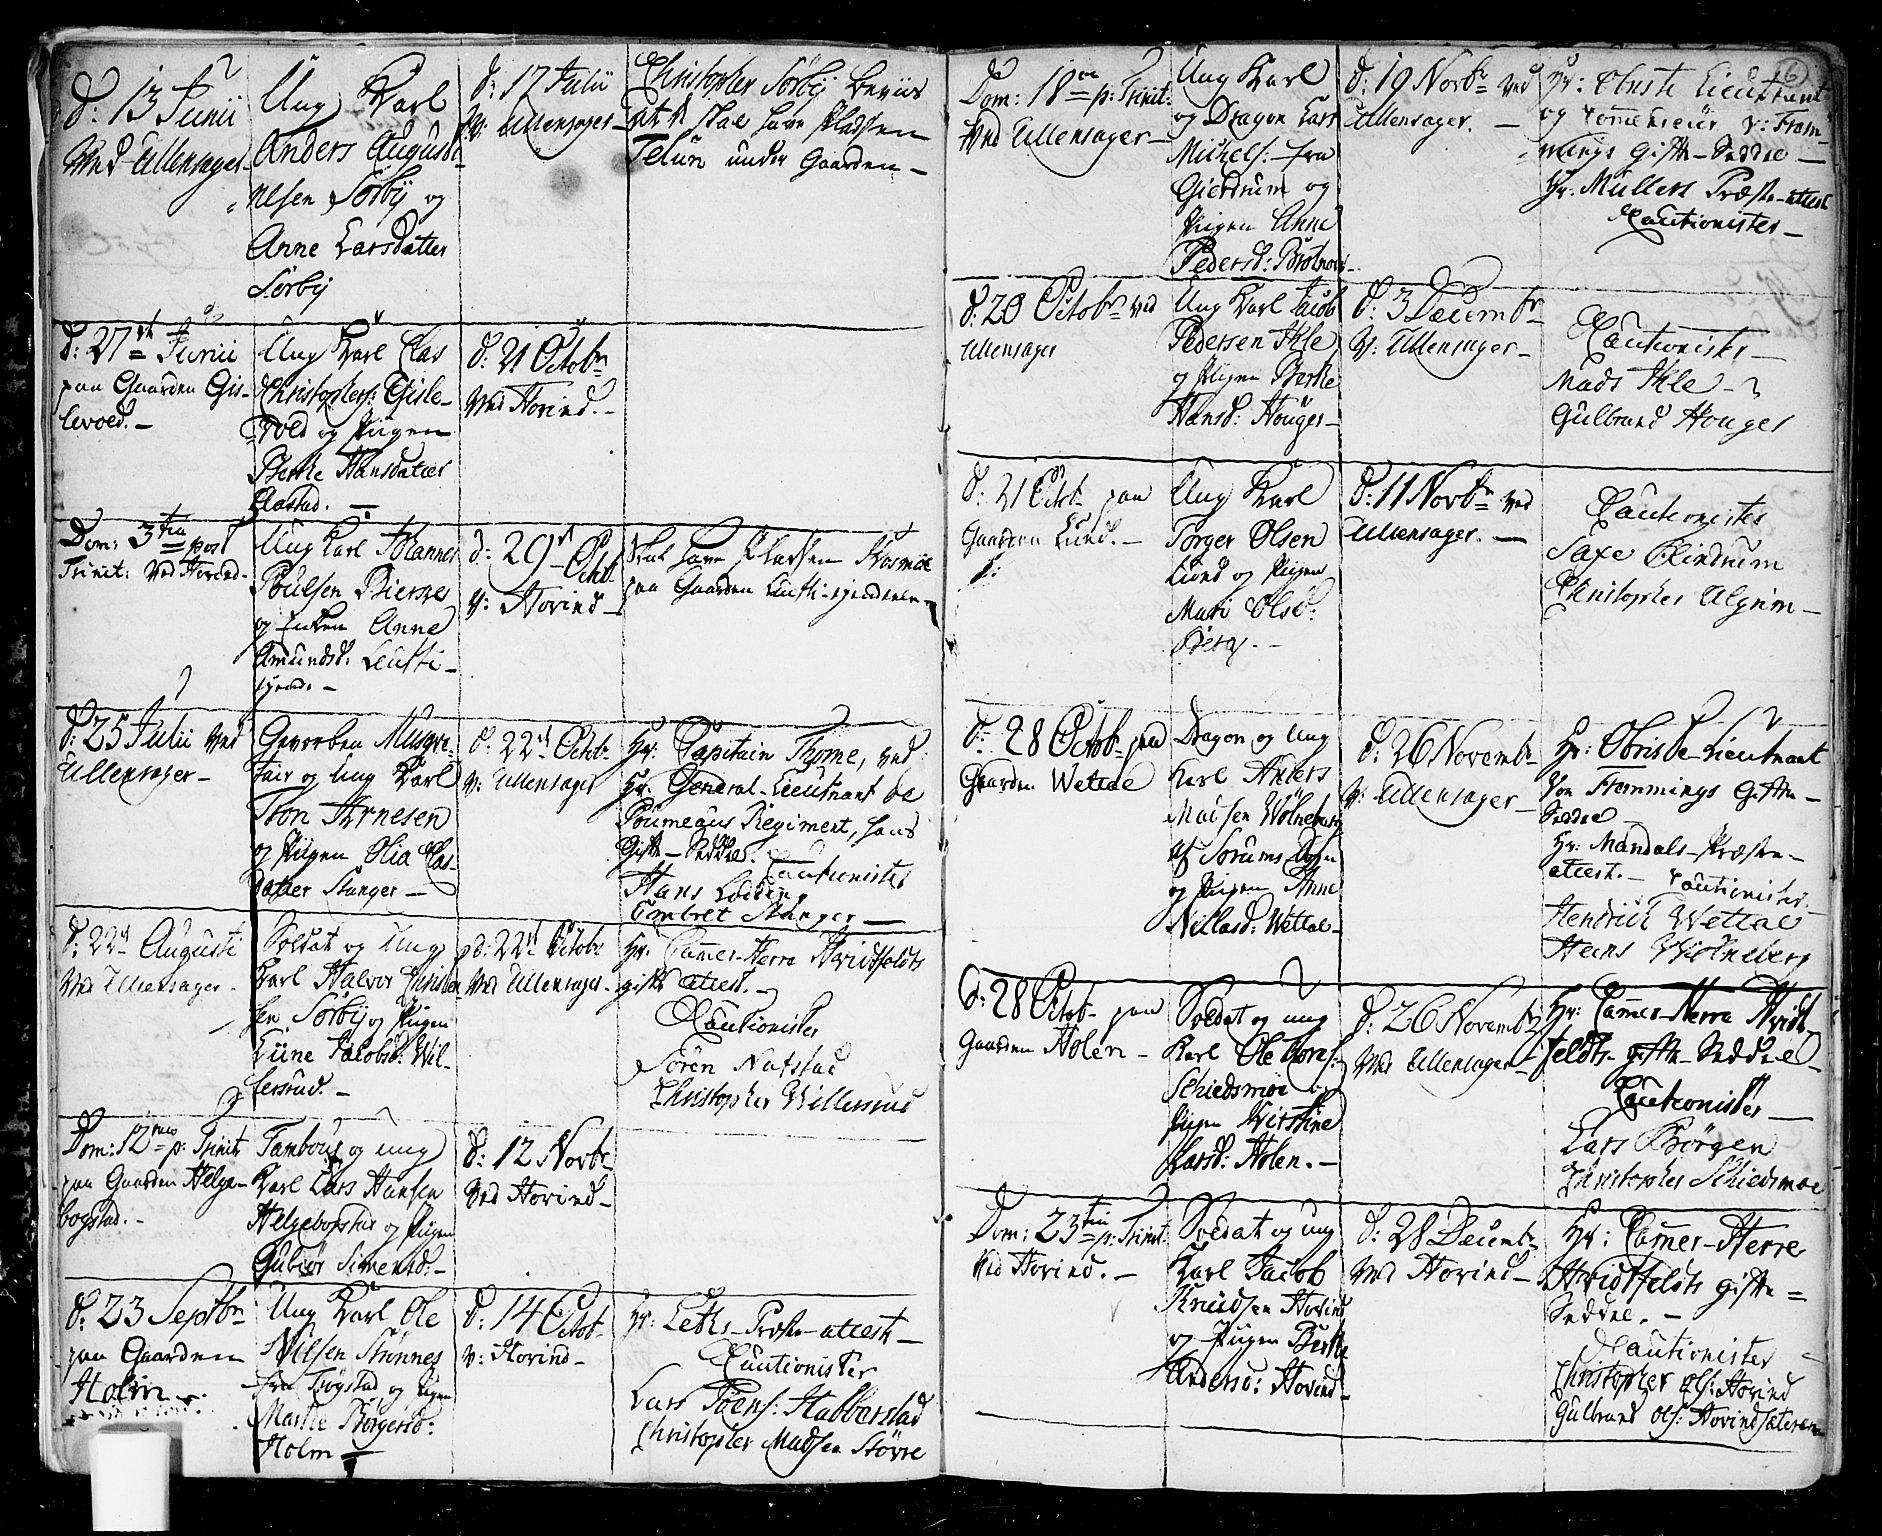 d: 13 Junii
Ved Ullensager-
Ung Karl
Anders Augusti-
nusen Sörby og
Anne Larsdatter
Sörby
d: 17 Julii
V: Ullensager-
Christopher Sörby beviis
at skal have Pladsen
under Gaarden -
d: 27 Junii
paa Gaarden Gis-
levold. -
Ung Karl Clas
Christophers: Gisle-
vold og Pigen
Berthe Hansdatter
d: 21 Octobr
Ved Hovind. -
Dom: 3tia post
Trinit: Ved Hovind-
Ung Karl Johannes
Poulsen Bierke
og Enken Anne
Amundsd:
d: 29 Octb
V: Hovind -
Skal have Pladsen
paa Gaarden
d: 25 Julii Ved
Ullensager -
Gevorben Musqve-
tair og Ung Karl
Arnesen
og Pigen Olia Clas-
datter Stanger -
d: 22 Octbr
V: Ullensager
Hr: Capitain Thyme, ved
Hr: General-Lieutnant de
Poumeaus Regiment, hans
Gifte-Seddel.
Cautionister
Hans
Embret Stanger -
d: 22 Augusti
Ved Ullensager -
Soldat og Ung
Karl Halvor Christen-
sen Sörby og Pigen
Jacobsd: Wil-
lersrud. -
d: 22 Octobr
Ved Ullensager -
Hr: Camer-Herre Hvidtfeldts
gifte attest. -
Cautionister
Sören Natstad
Christopher Willersrud
Dom: 12 p: Trinit
paa Gaarden Helge-
bogstad. -
Tambour og ung
Karl Lars Hansen
Helgebogstad og Pigen
Simensd: -
d: 12 Novbr
Ved Hovind -
d: 23 Septbr
paa Gaarden
Holm -
Ung Karl Ole
Nilsen
fra Trögstad og Pigen
Marthe Börgersd:
Holm -
d: 14 Octob
V: Hovind -
Hr: Præste-attest -
Cautionister
Lars Habberstad
Christopher Madsen Större
6
Dom: 18 p: Trinit:
Ved Ullensager -
Ung Karl
og Dragon Lars
Michels: fra
Gierdrum og
Pigen Anne
Pedersd:
d: 19 Novbr Ved
Ullensager. -
Hr: Obriste Lieutnant
og V: Fram-
mings Gifte-Seddel -
Hr: Müllers Præste-attest
Cautionister -
d: 20 Octobr ved
Ullensager
Ung Karl Jacob
Pedersen Ihle
og Pigen Berthe
Hansd: Houger -
d: 3 Decembr
V: Ullensager -
Cautionister -
Mads Ihle -
Gulbrand Houger
d: 21 Octb paa
Gaarden Lund. -
Ung Karl
Torger Olsen
Lund og Pigen
Mari Olsd:
Berg. -
d: 11 Novbr ved
Ullensager. -
Cautionister
Saxe
Christopher Algrim -
d: 28 Octob paa
Gaarden Wettal
Dragon og Ung
Karl Anders
Madsen Wölneberg
af Sörums Sogn
og Pigen Anne
Nielsd: Wettal -
d: 26 Novembr
V: Ullensager -
Hr: Obriste-Lieutnant
Von Frammings Gifte-
Seddel -
Hr: Mandals-Præste-
attest. - Cautionister
Hendrich Wettal
Hans Wölneberg
d: 28 Octob paa
Gaarden Holen -
Soldat og ung
Karl Ole
Schiedsmoe og
Pigen Kirstine
Larsd: Holen. -
d: 26 Novembr
Ved Ullensager -
Hr: Camer-Herre Hvidt-
feldts gifte-Seddel -
Cautionister -
Lars Börgen
Christopher Schiedsmoe
Dom: 23 p: Trinit:
Ved Hovind. -
Soldat og ung
Karl Jacob
Knudsen Hovind
og Pigen Berthe
Andersd: Hovind -
d: 28 Decembr
Ved Hovind -
Hr: Camer-Herre
Hvidtfeldts gifte-
Seddel. -
Cautionister
Christopher Ols: Hovind
Gulbrand Ols: Hovindsæteren